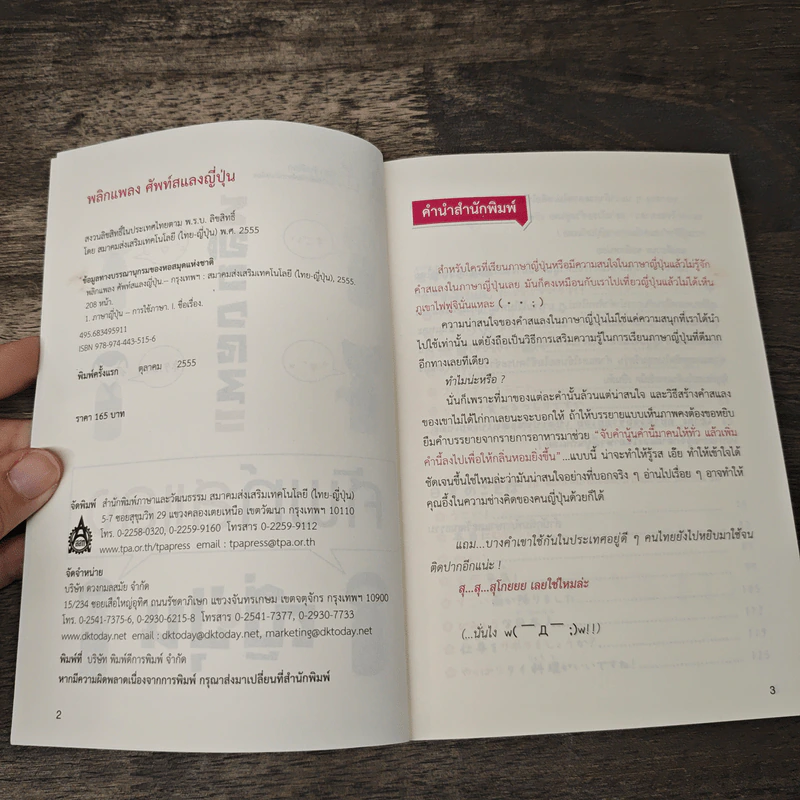 พลิกแพลง ศัพท์สแลงญี่ปุ่น
สงวนลิขสิทธิ์ในประเทศไทยตาม พ.ร.บ. ลิขสิทธิ์
โดย สมาคมส่งเสริมเทคโนโลยี (ไทย-ญี่ปุ่น) พ.ศ. 2555
ข้อมูลทางบรรณานุกรมของหอสมุดแห่งชาติ
พลิกแพลง ศัพท์สแลงญี่ปุ่น.-- กรุงเทพฯ : สมาคมส่งเสริมเทคโนโลยี (ไทย-ญี่ปุ่น), 2555
208 หน้า.
1. ภาษาญี่ปุ่น -- การใช้ภาษา. I. ชื่อเรื่อง.
495.683495911
ISBN 978-974-443-515-6
พิมพ์ครั้งแรก ตุลาคม 2555
ราคา 165 บาท
จัดพิมพ์ สำนักพิมพ์ภาษาและวัฒนธรรม สมาคมส่งเสริมเทคโนโลยี (ไทย-ญี่ปุ่น)
5-7 ซอยสุขุมวิท 29 แขวงคลองเตยเหนือ เขตวัฒนา กรุงเทพฯ 10110
โทร. 0-2258-0320, 0-2259-9160 โทรสาร 0-2259-9112
www.tpa.or.th/tpapress email : tpapress@tpa.or.th
ส.ส.ท.
จัดจำหน่าย
บริษัท ดวงกมลสมัย จำกัด
15/234 ซอยเสือใหญ่อุทิศ ถนนรัชดาภิเษก แขวงจันทรเกษม เขตจตุจักร กรุงเทพฯ 10900
โทร. 0-2541-7375-6, 0-2930-6215-8 โทรสาร 0-2541-7377, 0-2930-7733
www.dktoday.net email : dktoday@dktoday.net, marketing@dktoday.net
พิมพ์ที่ บริษัท พิมพ์ดีการพิมพ์ จำกัด
หากมีความผิดพลาดเนื่องจากการพิมพ์ กรุณาส่งมาเปลี่ยนที่สำนักพิมพ์
2
คำนำสำนักพิมพ์
สำหรับใครที่เรียนภาษาญี่ปุ่นหรือมีความสนใจในภาษาญี่ปุ่นแล้วไม่รู้จัก
คำสแลงในภาษาญี่ปุ่นเลย มันก็คงเหมือนกับเราไปเที่ยวญี่ปุ่นแล้วไม่ได้เห็น
ภูเขาไฟฟูจินั่นแหละ (・・；)
ความน่าสนใจของคำสแลงในภาษาญี่ปุ่นไม่ใช่แค่ความสนุกที่เราได้นำ
ไปใช้เท่านั้น แต่ยังถือเป็นวิธีการเสริมความรู้ในการเรียนภาษาญี่ปุ่นที่ดีมาก
อีกทางเลยทีเดียว
ทำไมน่ะหรือ ?
นั่นก็เพราะที่มาของแต่ละคำนั้นล้วนแต่น่าสนใจ และวิธีสร้างคำสแลง
ของเขาไม่ได้ไก่กาเลยนะจะบอกให้ ถ้าให้บรรยายแบบเห็นภาพคงต้องขอหยิบ
ยืมคำบรรยายจากรายการอาหารมาช่วย “จับคำนู้นคำนี้มาคนให้ทั่ว แล้วเพิ่ม
คำนี้ลงไปเพื่อให้กลิ่นหอมยิ่งขึ้น” ...แบบนี้ น่าจะทำให้รู้รส เอ๊ย ทำให้เข้าใจได้
ชัดเจนขึ้นใช่ไหมล่ะว่ามันน่าสนใจอย่างที่บอกจริง ๆ อ่านไปเรื่อย ๆ อาจทำให้
คุณอึ้งในความช่างคิดของคนญี่ปุ่นด้วยก็ได้
แถม...บางคำเขาใช้กันในประเทศอยู่ดี ๆ คนไทยยังไปหยิบมาใช้จน
ติดปากอีกแน่ะ !
สุ...สุ...สุโกยยย เลยใช่ไหมล่ะ
(...นั่นไง w(￣д￣;)w!!)
3